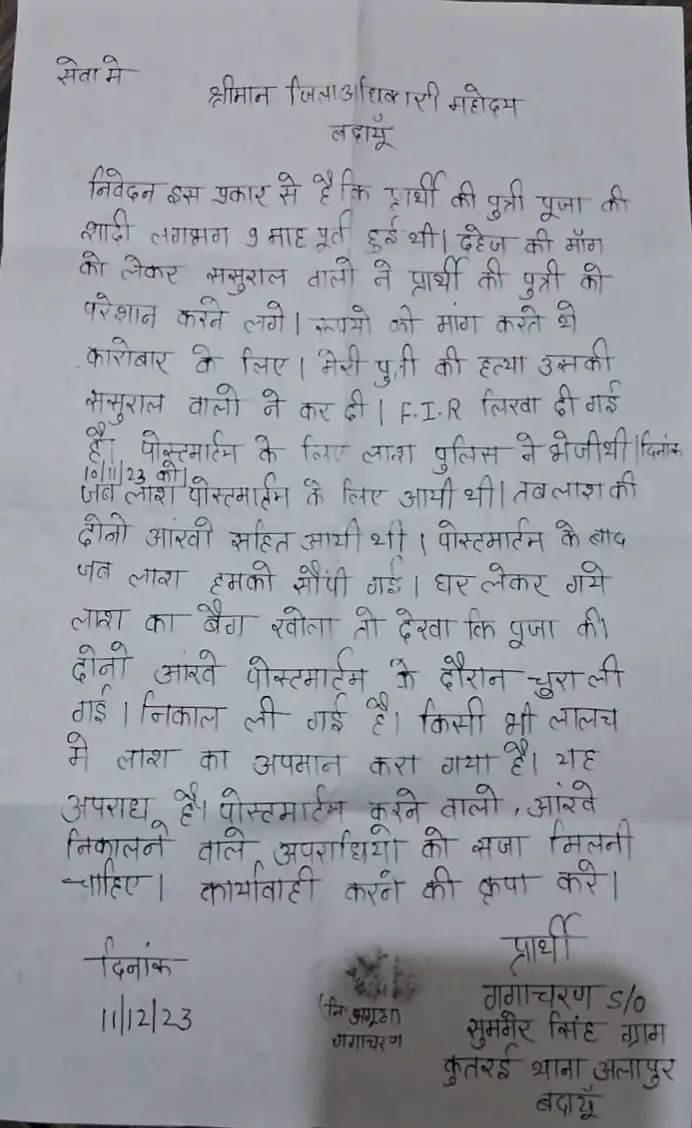 सेवा मे
श्रीमान जिलाअधिकारी महोदय
बदायूँ
निवेदन इस प्रकार से है कि प्रार्थी की पुत्री पूजा की
शादी लगभग 9 माह पूर्व हुई थी। दहेज की माँग
को लेकर ससुराल वालो ने प्रार्थी की पुत्री को
परेशान करने लगे। रूपयो की मांग करते थे
कारोबार के लिए। मेरी पुत्री की हत्या उसकी
ससुराल वालो ने कर दी। F.I.R लिखा दी गई
है। पोस्टमार्टम के लिए लाश पुलिस ने भेजीथी। दिनांक
10/11/23 को।
जब लाश पोस्टमार्टम के लिए आयी थी। तब लाश की
दोनो आंखो सहित आयी थी। पोस्टमार्टम के बाद
जब लाश हमको सौंपी गई। घर लेकर गये
लाश का बैग खोला तो देखा कि पूजा की
दोनो आंखे पोस्टमार्टम के दौरान चुरा ली
गई। निकाल ली गई है। किसी भी लालच
मे लाश का अपमान करा गया है। यह
अपराध है। पोस्टमार्टम करने वालो, आंखे
निकालने वाले अपराधियो को सजा मिलनी
चाहिए। कार्यावाही करने की कृपा करे।
प्रार्थी
दिनांक
11/12/23
(नि.अगूठा)
गगाचरण
गगाचरण S/O
सुममेर सिंह ग्राम
कुतरई थाना अलापुर
बदायूँ